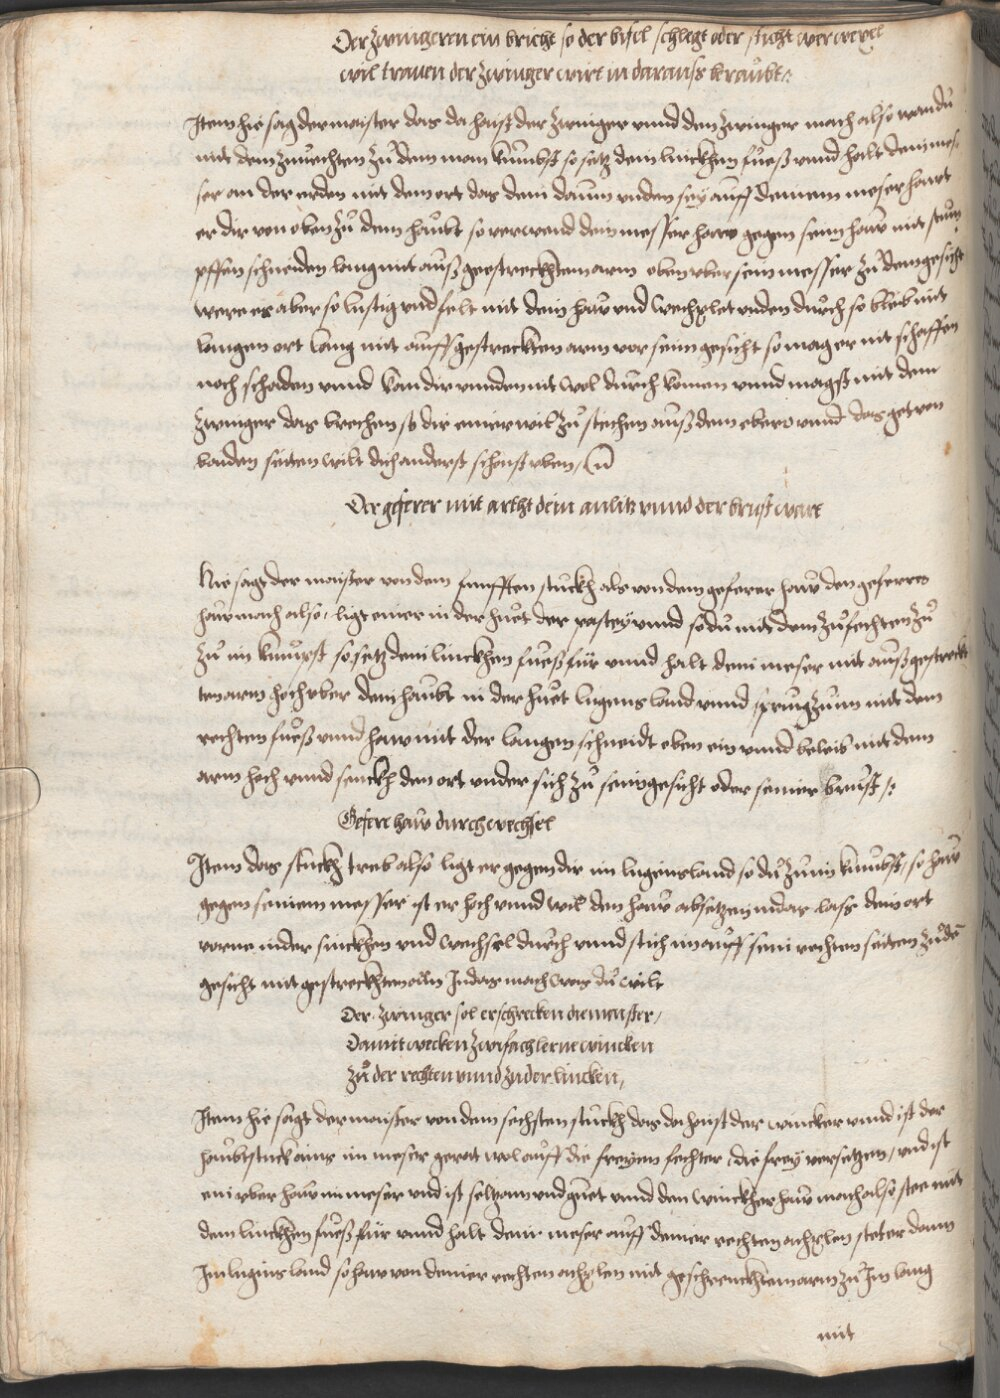 Der zwingeren ein bricht so der bifel schlegt oder sticht wer werel
wil trauen der zwinger wirt in darauss beraubt
Item hie sag der maister das da haist der zwinger unnd den zwinger mach also wan du
mit dem zufechten zu dem man kumbst so setz dein linckhen fuess unnd halt dein mes
ser an der erden mit dem ort das dein daum unden sey auff deinem meser haut
er dir von oben zu dem haubt so verwend dein messer haw gegen seim haw mit stum
pffen schneiden lang mit aussgestreckhtem arm oben uber sein messer zu dem gesicht
were es aber so lustig und felt mit dem haw und wechslet unden durch so bleib mit
langem ort lang mit aussgestreckten arm vor seim gesicht so mag er nit schaffen
noch schaden unnd kan dir unnden nit wol durch komen unnd magst mit dem
zwinger das brechen so dir einer wil zu stechen auss dem eber unnd das get von
baiden seiten wilt dich anderst schonst uben
Der geferer mit artht dein anlitz unnd der brust wert
Hie sagt der maister von dem funfften stuckh als von dem geferer haw den geferes
haw mach also ligt einer in der huot der pastey unnd so du mit dem zufechten zu
zu im kumbst so setz dein linckhen fuess für unnd halt dein meser mit aussgestreckt
ten arm hoch uber dein haubt in der huot luginsland unnd spring zu im mit dem
rechten fuess unnd haw mit der langen schneidt oben ein unnd beleib mit dem
arm hoch unnd senckh den ort under sich zu seim gesicht oder seiner brust
Gefere haw durchwechsel
Item das stuckh treib also ligt er gegen dir im luginsland so du zu im kumbst so haw
gegen seinem messer ist er hoch unnd will den haw absetzen indas lass dein ort
vorne nider sinckhen und wechsel durch unnd stich im auff sein rechten seiten zu dē
gesicht mit gestreckhtem arm Indas mach was du wilt
Der zwinger sol erschrecken die meister
Damit wecken zwifach lerne wincken
zu der rechten unnd zu der lincken
Item hie sagt der maister von dem sechsten stuckh das do haist der wincker unnd ist der
haubtstuck ains im meser gerat wol auff die freyen fechter die frey versetzen und ist
ein uber haw im meser und ist seltzam und guet unnd den winckher haw mach also stee mit
dem linckhen fuess für unnd halt dein meser auff deiner rechten achslen stet er dann
Im luginsland so haw von deiner rechten achslen mit geschrenckhtem arm zu Im lang
mit